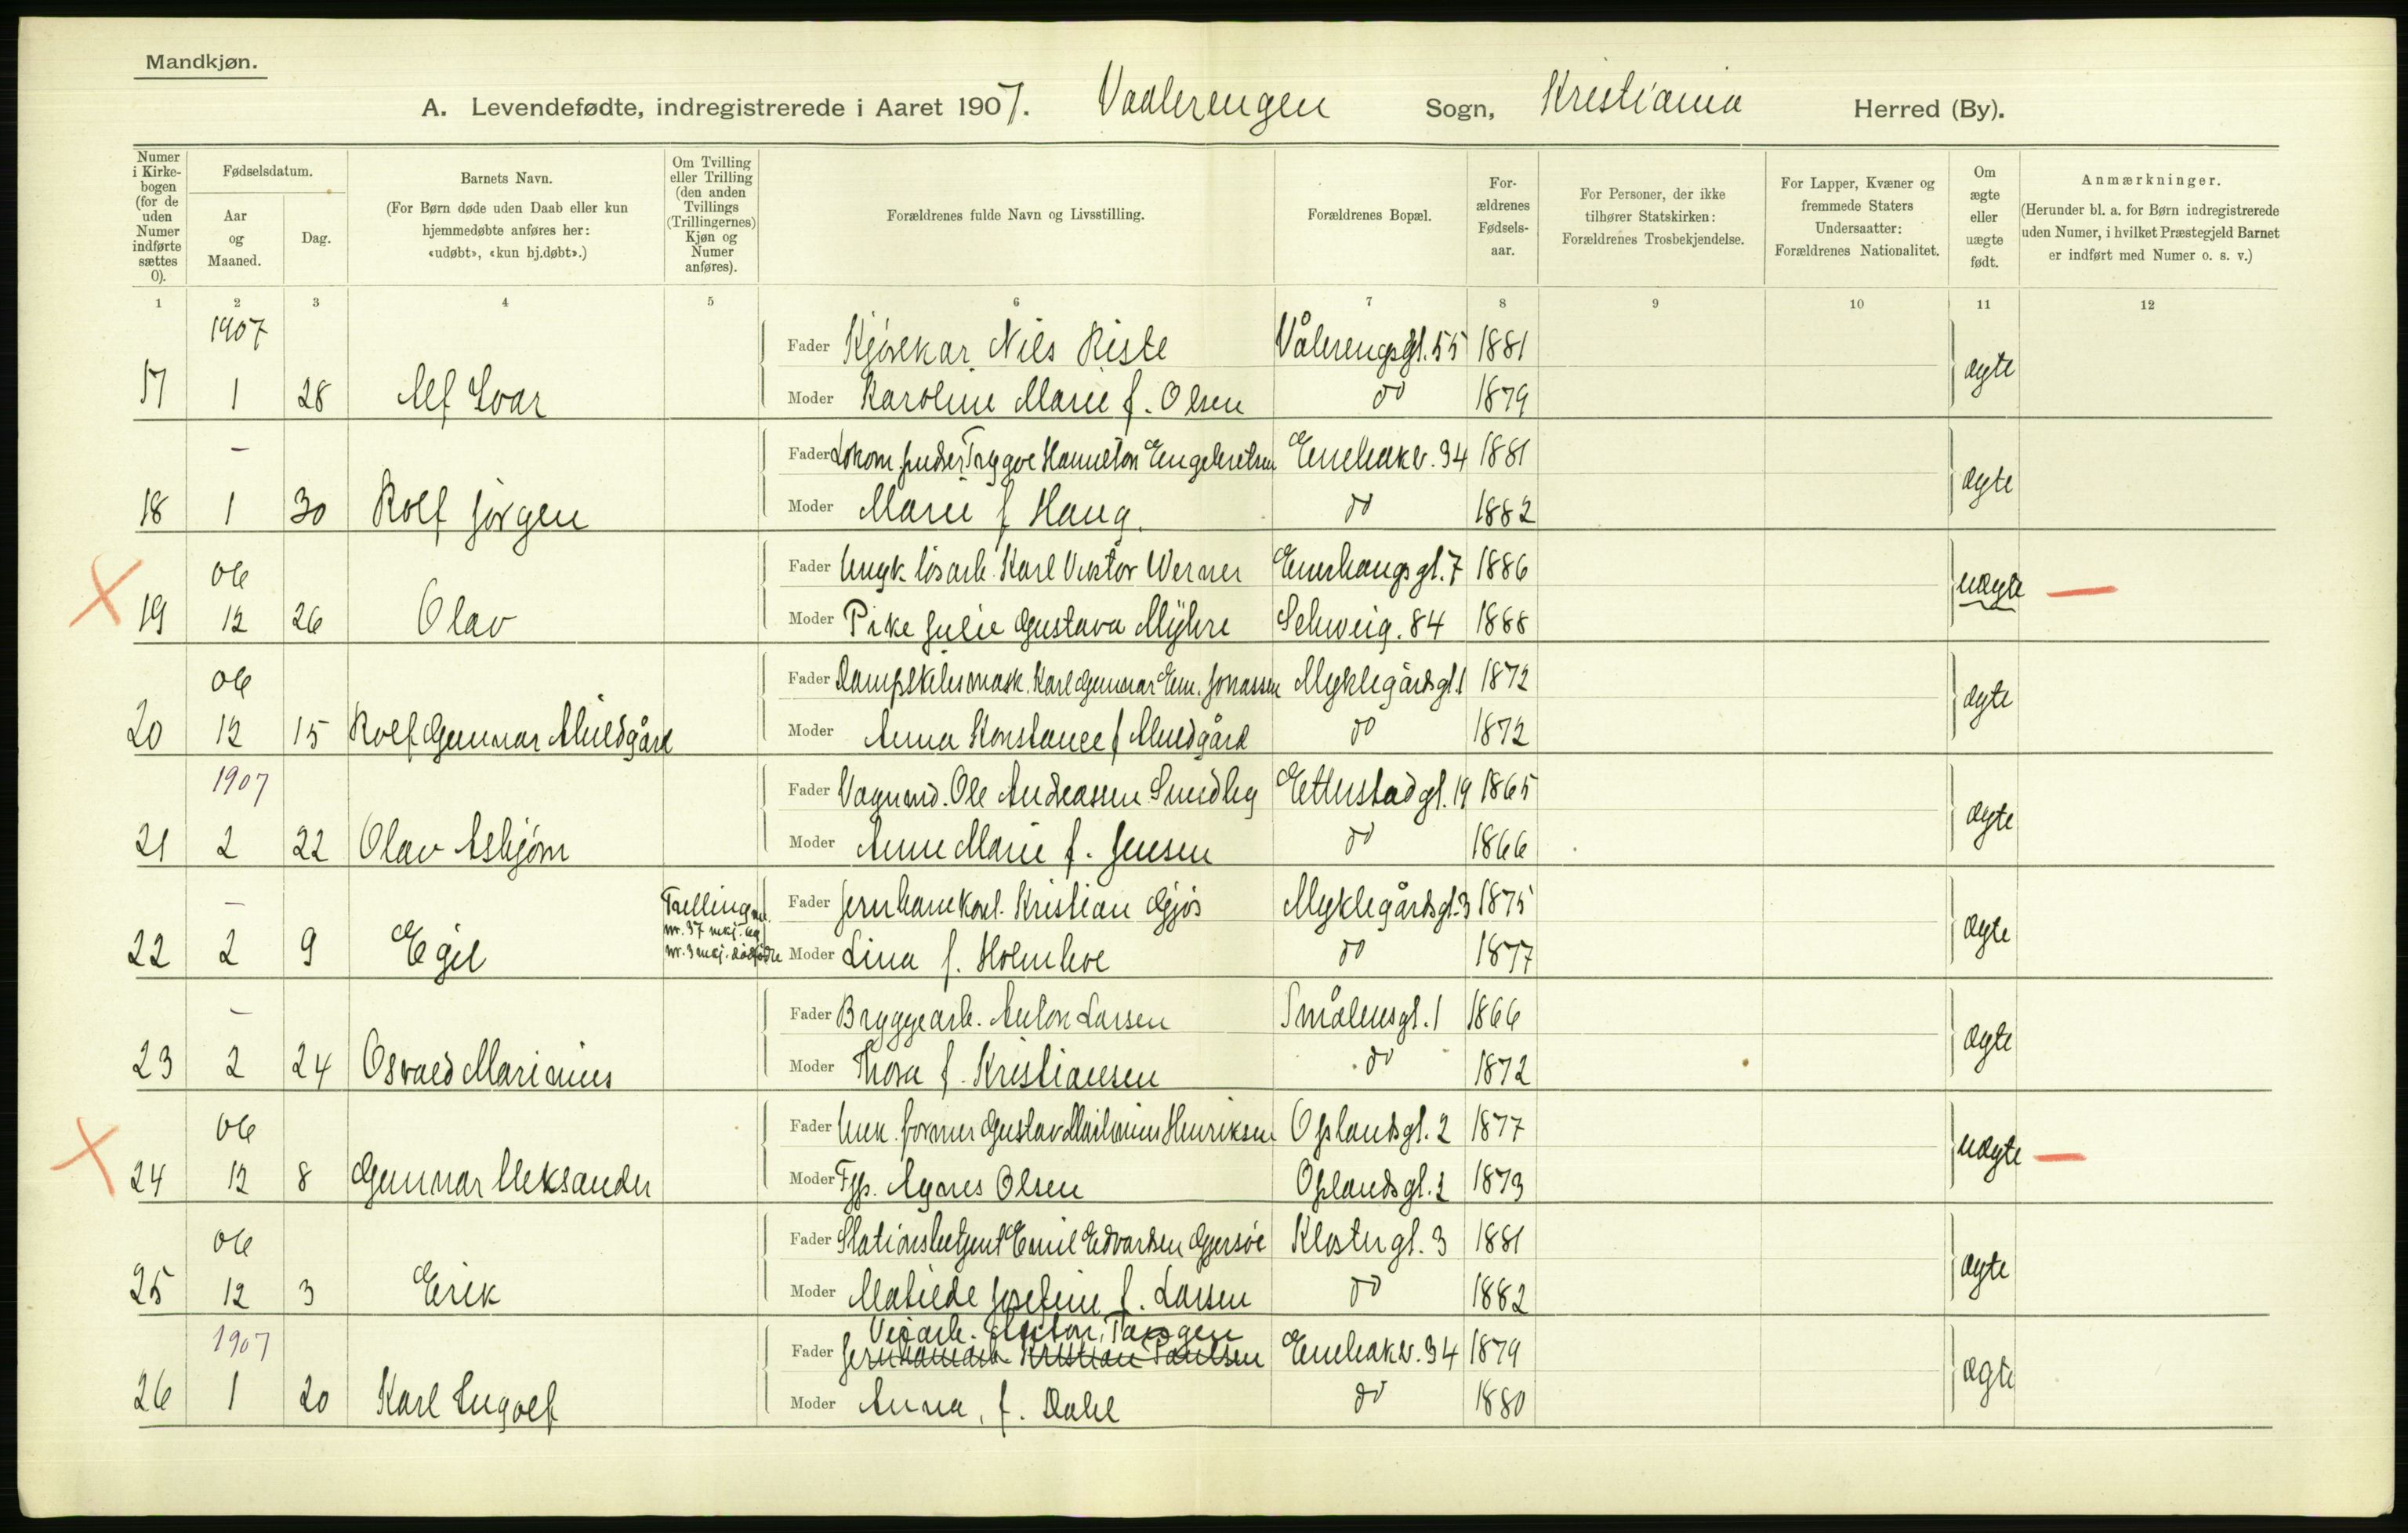 Mandkjøn.
A. Levendefødte, indregistrerede i Aaret 1907. Vaalerengen Sogn, Kristiania Herred (By).
Numer i Kirkebogen (for de uden Numer indførte sættes 0).
Fødselsdatum.
Aar og Maaned.
Dag.
Barnets Navn.
(For Børn døde uden Daab eller kun hjemmedøbte anføres her: «udøbt», «kun hj.døbt».)
Om Tvilling eller Trilling (den anden Tvillings (Trillingernes) Kjøn og Numer anføres).
Forældrenes fulde Navn og Livsstilling.
Forældrenes Bopæl.
Forældrenes Fødselsaar.
For Personer, der ikke tilhører Statskirken: Forældrenes Trosbekjendelse.
For Lapper, Kvæner og fremmede Staters Undersaatter: Forældrenes Nationalitet.
Om ægte eller uægte født.
Anmærkninger.
(Herunder bl. a. for Børn indregistrerede uden Numer, i hvilket Præstegjeld Barnet er indført med Numer o. s. v.)
1 2 3 4 5 6 7 8 9 10 11 12
1907 Fader Nils Riste Vålerengsgt. 55 1881
17 1 28 Alf Ivar Moder Karoline Marie f. Olsen do 1879 ægte
- Fader Lokom. pudser Trygve Hamilton Engebretsen Enebakv. 34 1881
18 1 30 Rolf Jørgen Moder Marie f Haug. do 1882 ægte
06 Fader Ungk. løsarb. Karl Viktor Werner Enerhaugsgt. 7 1886
19 12 26 Olav Moder Pike Julie Gustava Myhre Schweig. 84 1888 uægte —
06 Fader Dampskibsmask. Karl Gunnar Em. Jonassen Myklegårdsgt. 1 1872
20 12 15 Rolf Gunnar Moder Anna Konstance f do 1872 ægte
1907 Fader Vognmd. Ole Andreassen Smedby Etterstadgt. 19 1865
21 2 22 Olav Asbjørn Moder Anne Marie f. Jensen do 1866 ægte
- Trilling med Fader Kristian Gjøs Myklegårdsgt. 3 1875
22 2 9 Egil nr. 37 mkj. og nr. 3 mkj. dødfødte Moder Lina f. do 1877 ægte
- Fader Bryggearb. Anton Larsen Smålensgt. 1 1866
23 2 24 Osvald Marinius Moder Thora f. Kristiansen do 1872 ægte
06 Fader Unk. former Gustav Henriksen Oplandsgt. 2 1877
24 12 8 Gunnar Aleksander Moder Fp. Agnes Olsen Oplandsgt. 2 1873 uægte —
06 Fader Stationsbetjent Emil Edvardsen Gjersøe Klostergt. 3 1881
25 12 3 Erik Moder Matilde Josefine f. Larsen do 1882 ægte
Veiarb.
1907 Fader Kristian Paulsen Enebakv. 34 1879
26 1 20 Karl Ingolf Moder Anna, f. Dahl do 1880 ægte